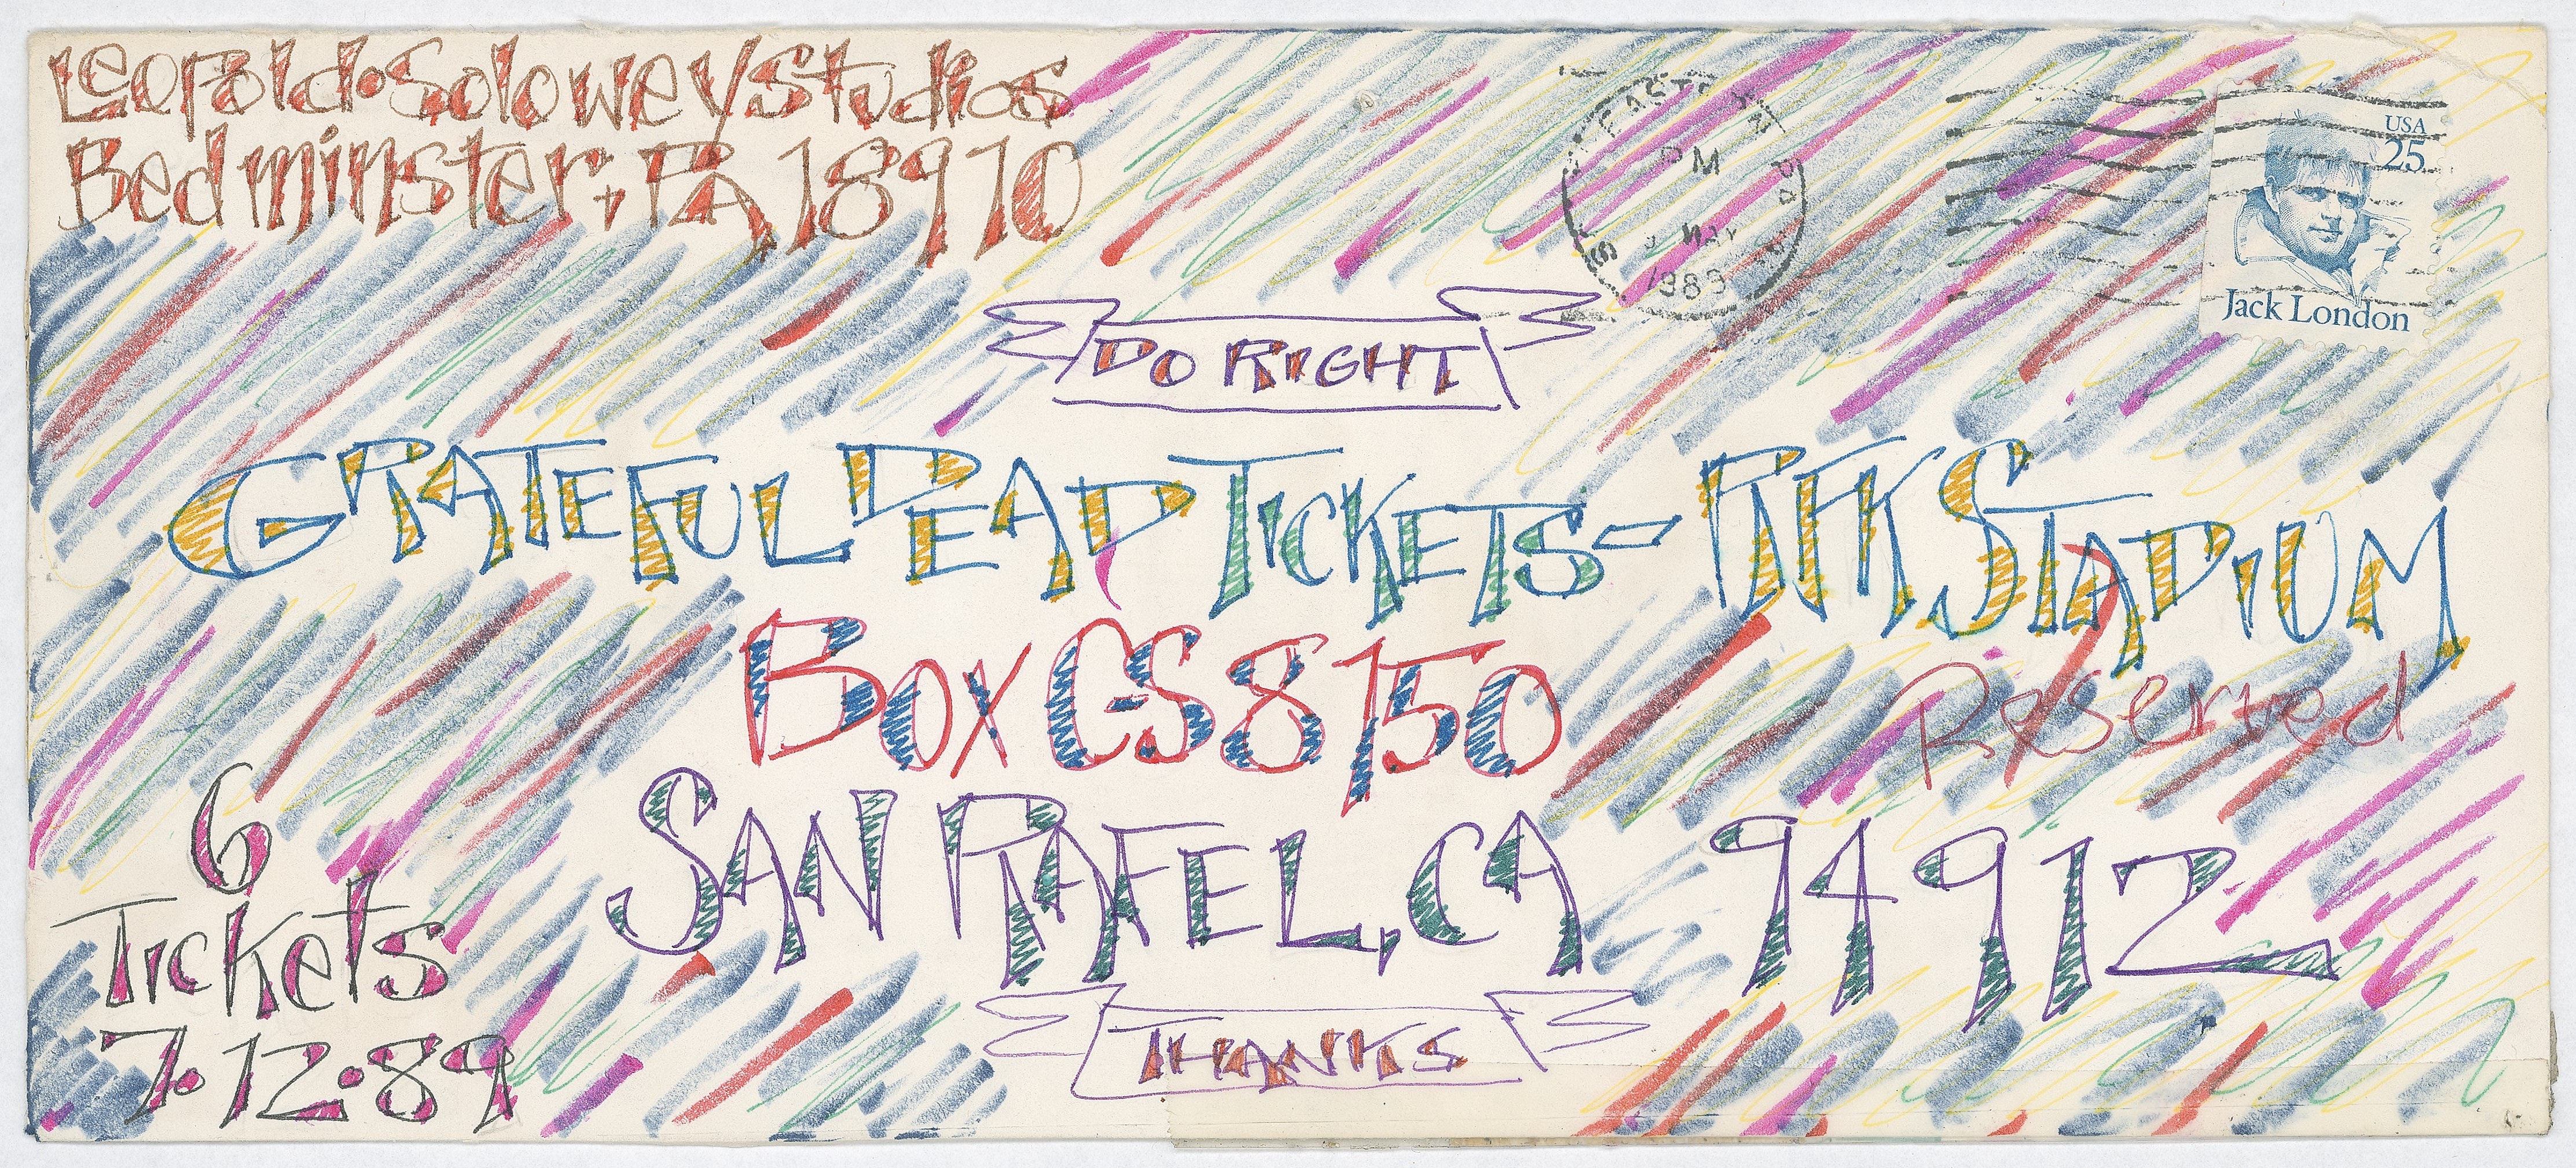 Leopold•Solowey Studios
Bedminster, PA 18910
PM
MAY
1989
USA
25
Jack London
DO RIGHT
GRATEFUL DEAD TICKETS - RFK STADIUM
BOX GS 8150
Reserved
SAN RAFEL, CA 94912
THANKS
6
Tickets
7•12•89